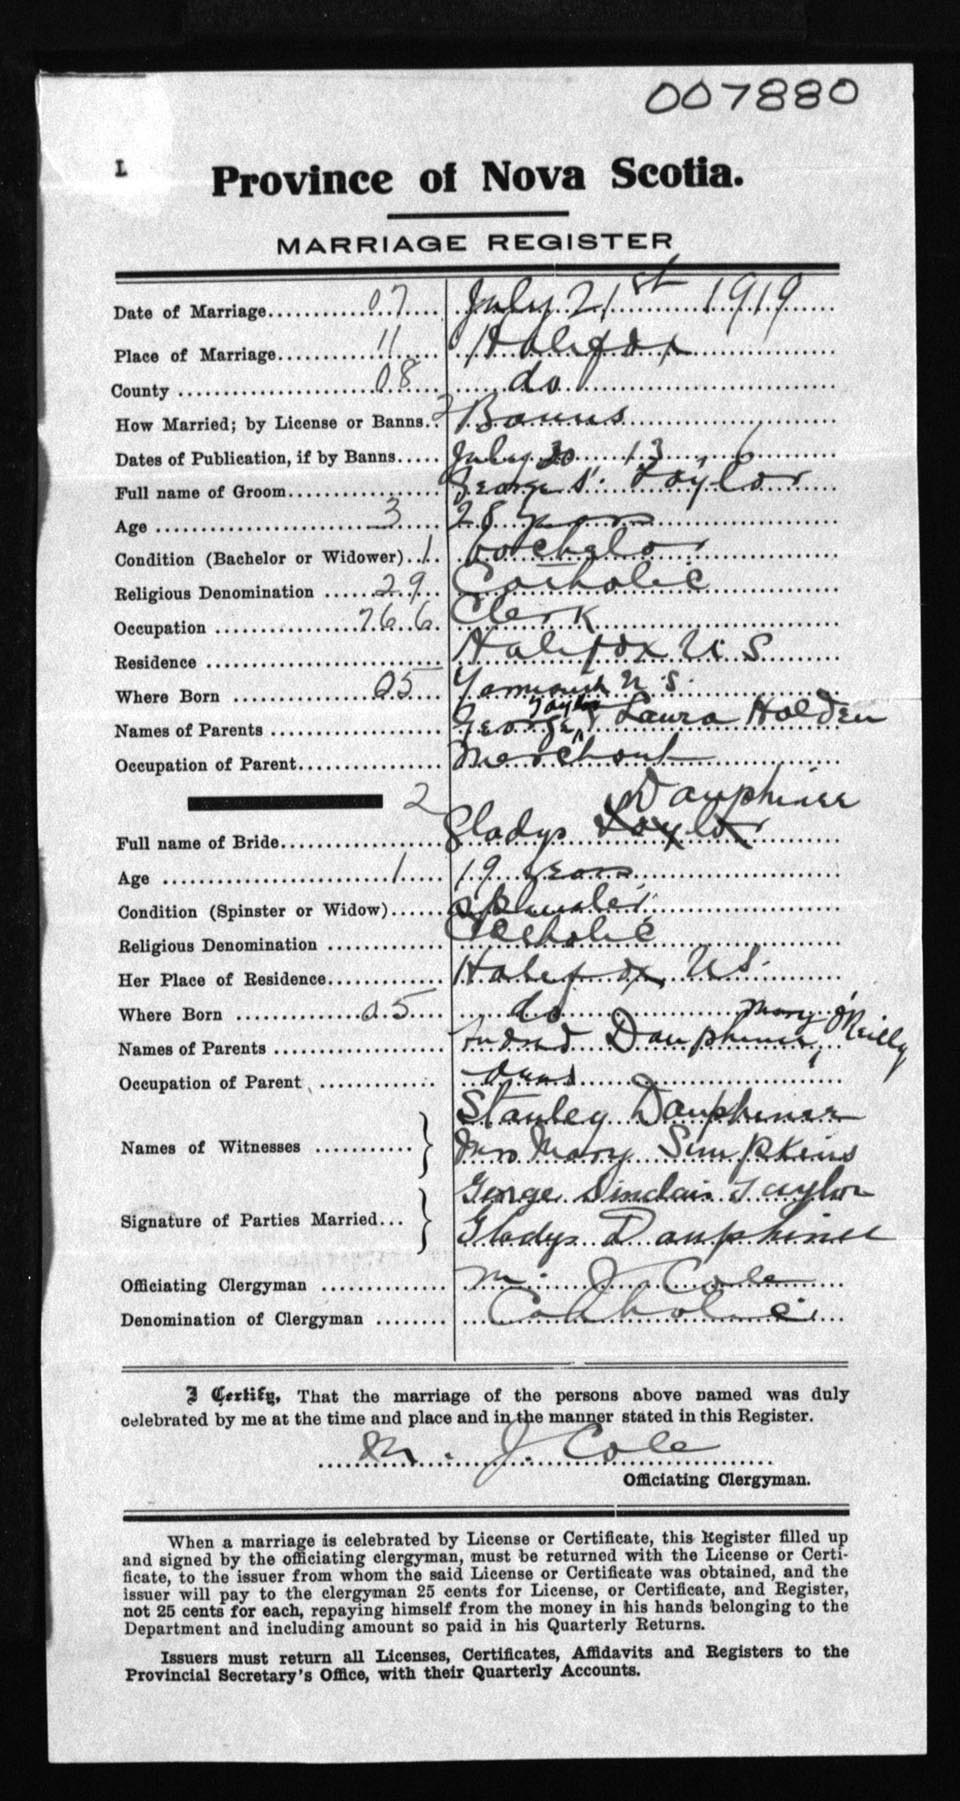 007880
L
Province of Nova Scotia.
MARRIAGE REGISTER
Date of Marriage 07 July 21st 1919
Place of Marriage 11 Halifax
County 08 do
How Married; by License or Banns. 2 Banns
Dates of Publication, if by Banns July 20 13 6
Full name of Groom George S. Taylor
Age 3 28 years
Condition (Bachelor or Widower) 1 bachelor
Religious Denomination 29 Catholic
Occupation 766 Clerk
Residence Halifax N S
Where Born 05 N.S.
Names of Parents George Taylor & Laura Holden
Occupation of Parent Merchant
2 Dauphinee
Full name of Bride Gladys Taylor
Age 1 19 years
Condition (Spinster or Widow) spinster
Religious Denomination Catholic
Her Place of Residence Halifax NS.
Where Born 05 do
Names of Parents Dauphinee, Mary O'Reilly
Occupation of Parent
Stanley Dauphinee
Names of Witnesses Mrs Mary Simpkins
George Sinclair Taylor
Signature of Parties Married... Gladys Dauphinee
Officiating Clergyman M. J. Cole
Denomination of Clergyman Catholic
I Certify, That the marriage of the persons above named was duly
celebrated by me at the time and place and in the manner stated in this Register.
M. J. Cole
Officiating Clergyman.
When a marriage is celebrated by License or Certificate, this Register filled up
and signed by the officiating clergyman, must be returned with the License or Certi-
ficate, to the issuer from whom the said License or Certificate was obtained, and the
issuer will pay to the clergyman 25 cents for License, or Certificate, and Register,
not 25 cents for each, repaying himself from the money in his hands belonging to the
Department and including amount so paid in his Quarterly Returns.
Issuers must return all Licenses, Certificates, Affidavits and Registers to the
Provincial Secretary's Office, with their Quarterly Accounts.